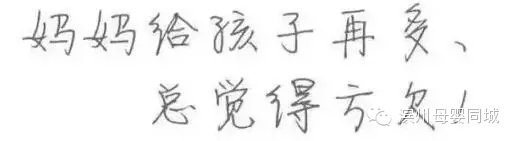 妈妈给孩子再多、
总觉得亏欠！
宾川母婴同城